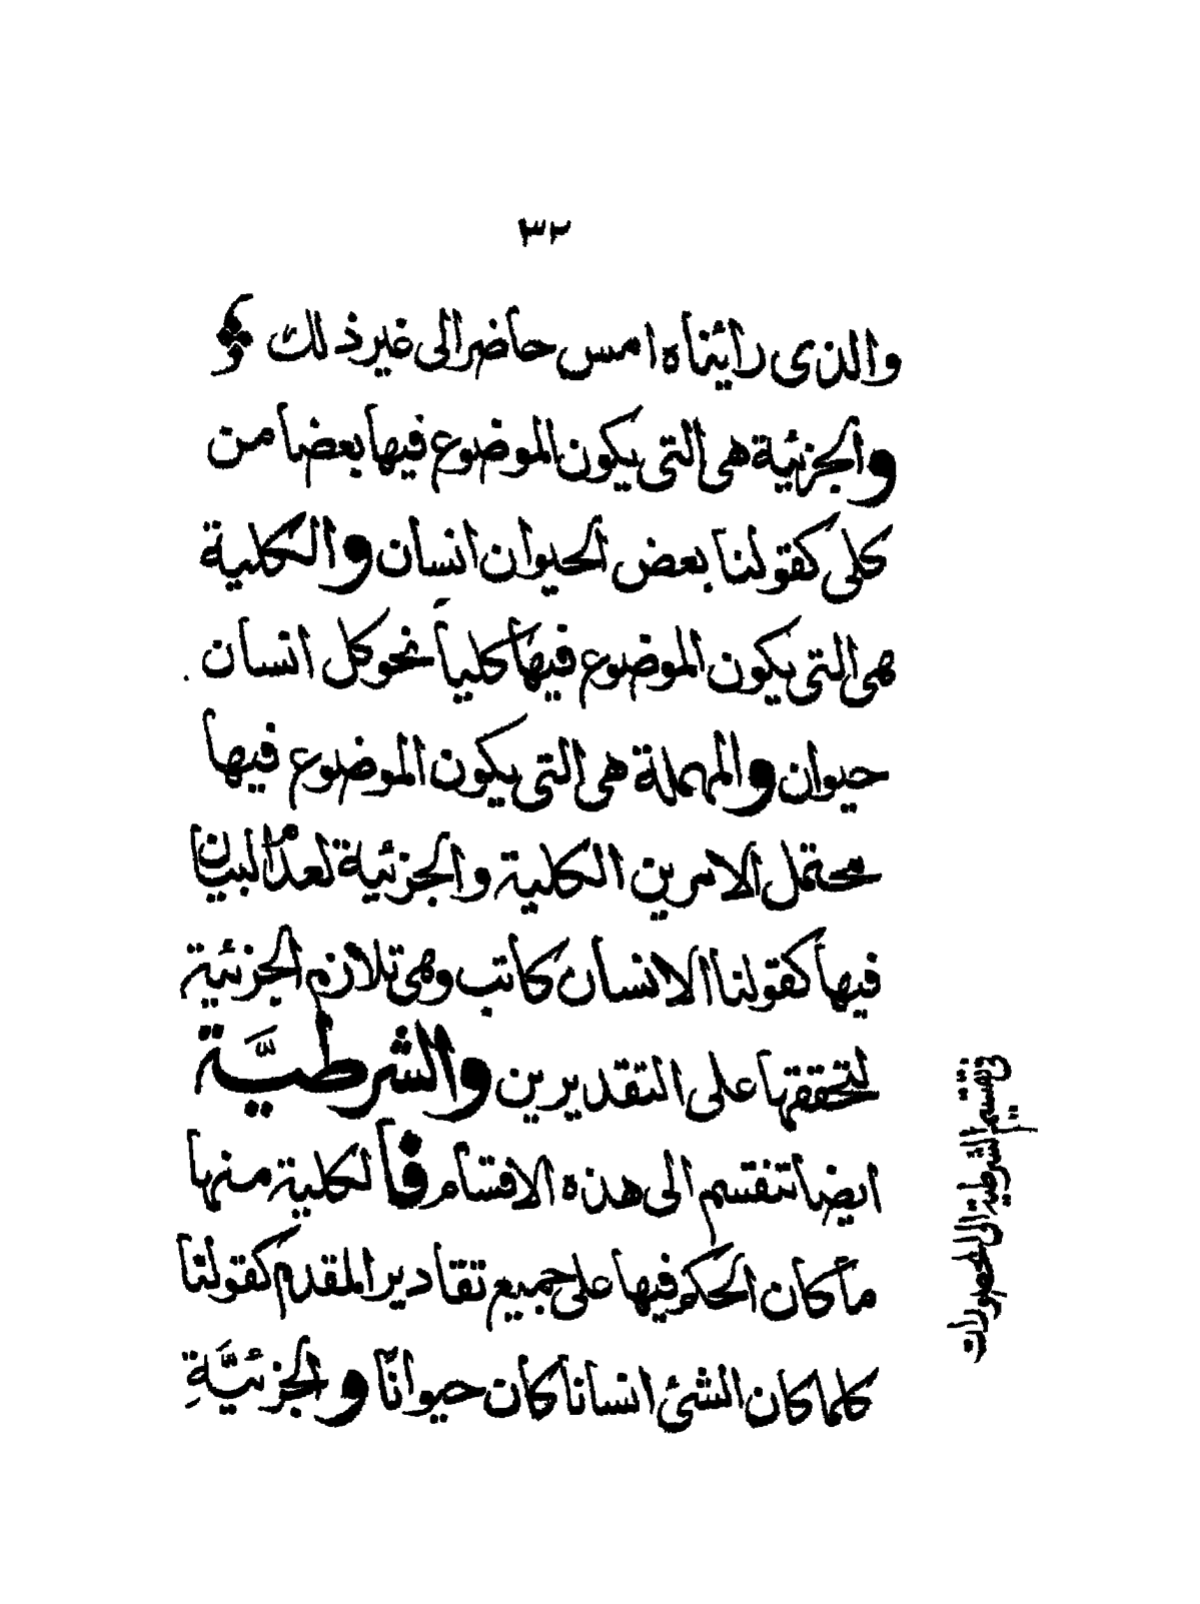 ٣٢
والذى رائيناه امس حاضر الى غير ذلك
والجزئية هى التى يكون الموضوع فيها بعضا من
كلى كقولنا بعض الحيوان انسان والكلية
هى التى يكون الموضوع فيها كلياً نحو كل انسان
حيوان والمهملة هى التى يكون الموضوع فيها
محتمل الامرين الكلية والجزئية لعدم البيان
فيها كقولنا الانسان كاتب وهى تلازم الجزئية
لتحققها على التقديرين والشرطيَّة
ايضا تنقسم الى هذه الاقسام فالكلية منها
ما كان الحكم فيها على جميع تقادير المقدم كقولنا
كلما كان الشئ انسانا كان حيوانًا والجزئيَّةِ
فى تقسيم الشرطية الى المحصورات